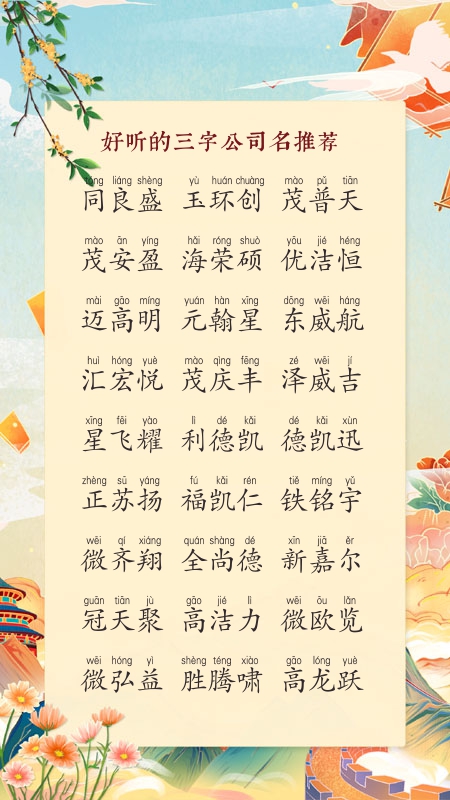 好听的三字公司名推荐
tóng liáng shèng yù huán chuàng mào pǔ tiān
同良盛 玉环创 茂普天
mào ān yíng hǎi róng shuò yōu jié héng
茂安盈 海荣硕 优洁恒
mài gāo míng yuán hàn xīng dōng wēi háng
迈高明 元翰星 东威航
huì hóng yuè mào qìng fēng zé wēi jí
汇宏悦 茂庆丰 泽威吉
xīng fēi yào lì dé kǎi dé kǎi xùn
星飞耀 利德凯 德凯迅
zhèng sū yáng fú kǎi rén tiě míng yǔ
正苏扬 福凯仁 铁铭宇
wēi qí xiáng quán shàng dé xīn jiā ěr
微齐翔 全尚德 新嘉尔
guān tiān jù gāo jié lì wēi ōu lǎn
冠天聚 高洁力 微欧览
wēi hóng yì shèng téng xiào gāo lóng yuè
微弘益 胜腾啸 高龙跃